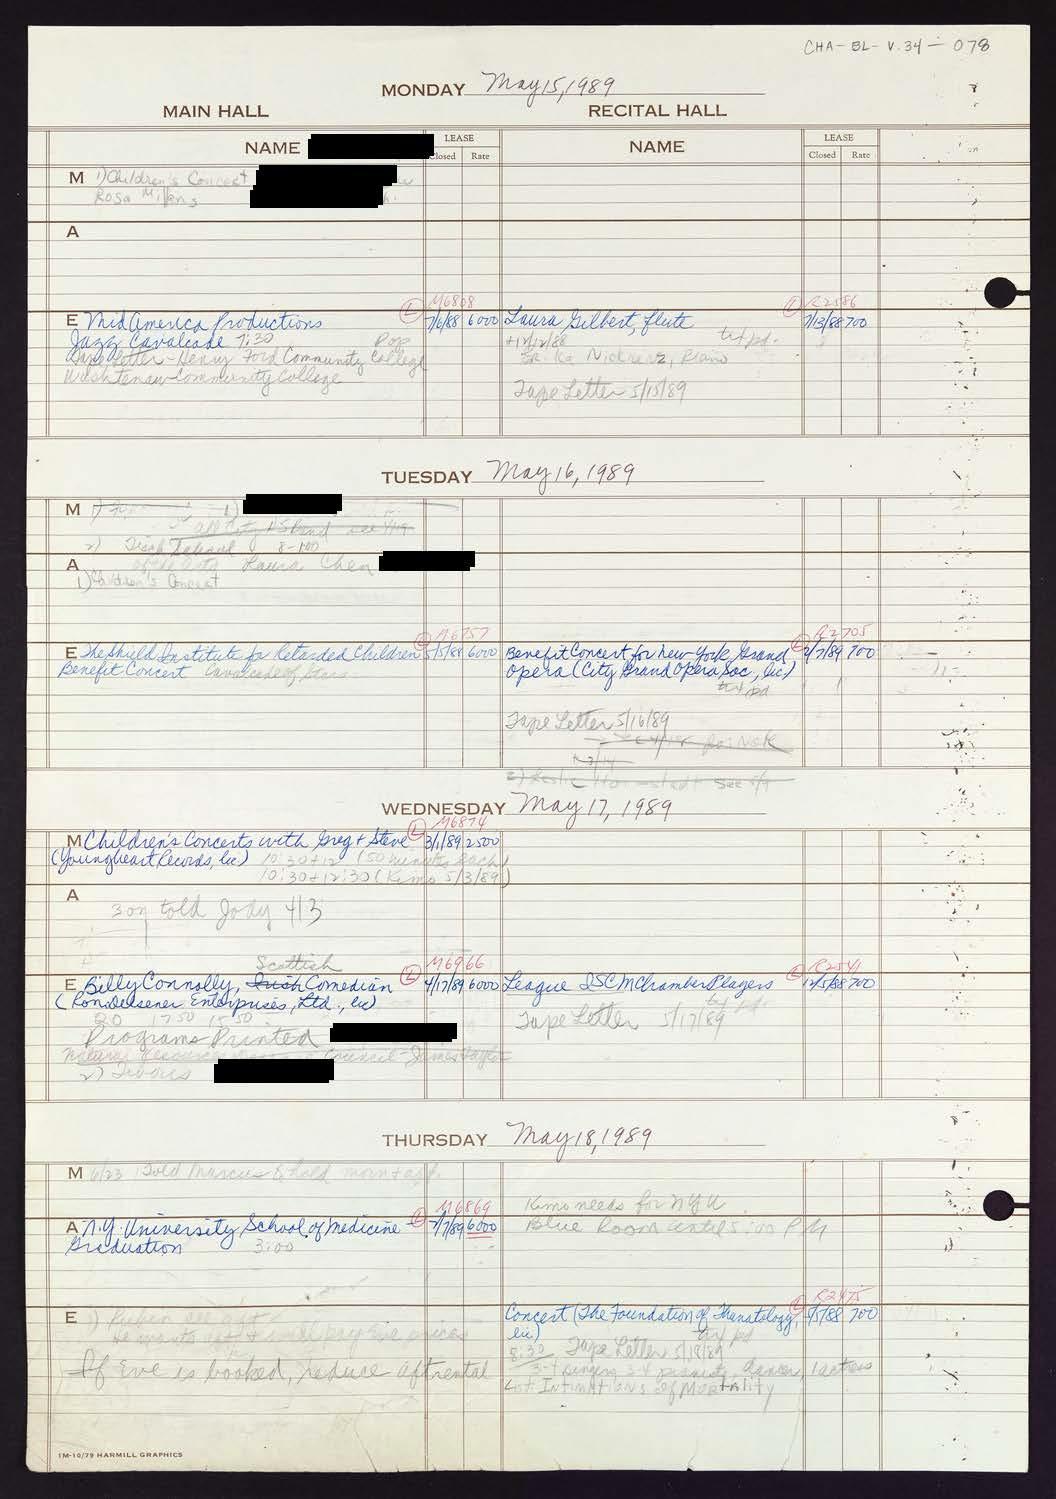 CHA-BL-V.34-078
MONDAY May 15, 1989
MAIN HALL RECITAL HALL
NAME LEASE Closed Rate NAME LEASE Closed Rate
M 1) Children's Concert
Rosa
A
M6808 R2586
E MidAmerica Productions L 7/6/88 6000 Laura Gilbert, flute L 7/13/88 700
Jazz Cavalcade 7:30 Pop +12/12/88 txt pd.
Tape Letter - Henry Ford Community College Piano
Washtenaw Community College
Tape Letter 5/15/89
TUESDAY May 16, 1989
M 1) 1)
All City
2) Tisch School 8-1:00
A of the Arts Laura Chen
1) Children's Concert
M6757 R2705
E The Shield Institute for Retarded Children L 5/5/88 6000 Benefit Concert for New York Grand L 2/7/89 700
Benefit Concert Cavalcade of Stars Opera (City Grand Opera Soc., Inc)
txt pd
Tape Letter 5/16/89
for NSK
2) Leslie see 5/9
WEDNESDAY May 17, 1989
M6874
M Children's Concerts with Greg + Steve L 3/1/89 2500
(Youngheart Records, Inc) 10:30 + 12 (50 minutes each)
10:30 + 12:30 (Kimo 5/3/89)
A
3 on told Jody 4/3
Scottish M6966 R2541
E Billy Connolly, Irish Comedian L 4/17/89 6000 League ISCM Chamber Players L 700
(Ron Delsener Enterprises, Ltd., Inc)
20 17 50 15 50 Tape Letter 5/17/89
Programs Printed
Natural Resources Council - James Taylor
2)
THURSDAY May 18, 1989
M 6/23 Told Marcus hold morn + aft.
M6869 Kimo needs for NYU
A N.Y. University School of Medicine L 7/7/89 6000 Blue Room until 5:00 P.M
Graduation 3:00
R2475
E 1) Rubin Concert (The Foundation of Thanatology, L 5/5/88 700
He wants aft + will pay eve prices Inc) txt pd
8:30 Tape Letter 5/18/89
If Eve is booked, reduce aft rental 3-4 singers 3-4 pianists, dancer, 1 actress
Intimations of Mortality
1M-10/79 HARMILL GRAPHICS